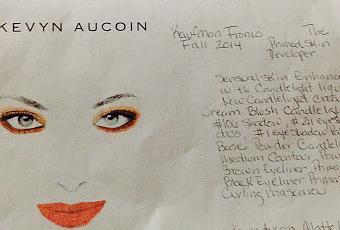 KEVYN AUCOIN
Kaufman Franco
Fall 2014
The
Primed Skin
Developer
Sensual Skin Enhance
with Candlelight
New Candlelight
Cream Blush Candle
#106 Shadow
duo, #1 eye shadow
Base Powder Candle
Medium Contour
Brown Eyeliner
Black Eyeliner
Curling Mascara